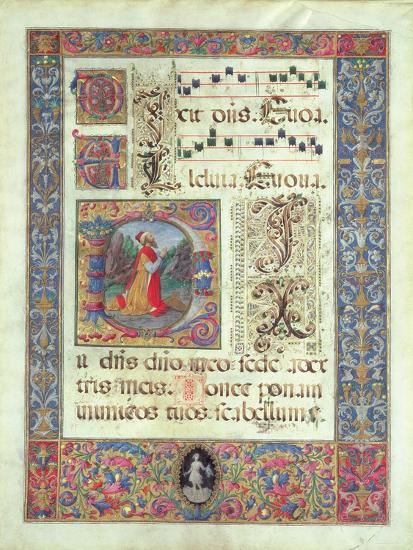 DIxit dñs. Euoa.
AElleluia, Euoua.
DIXIt dñs dño meo sede a dex
tris meis. Donec ponam
inimicos tuos, scabellum